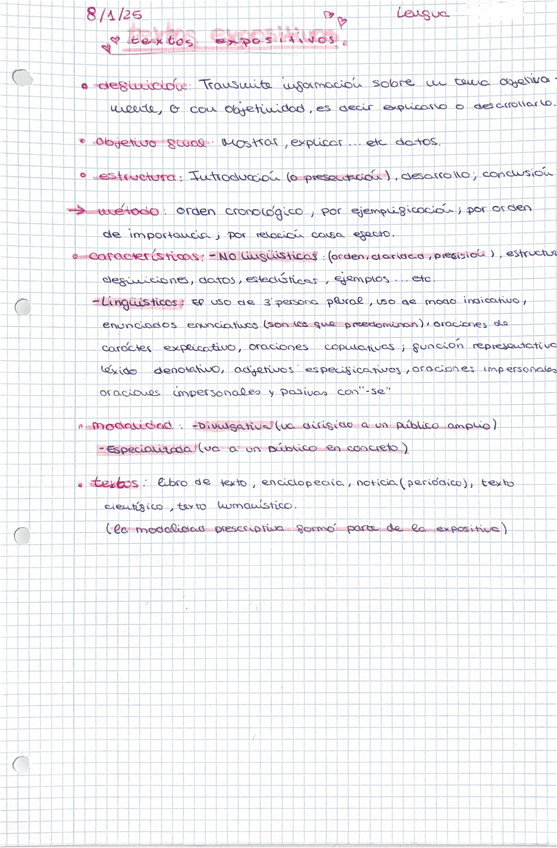 8/1/25 Lengua
textos expositivos.
• definición: Transmite información sobre un tema objetiva-
mente, o con objetividad, es decir explicarlo o desarrollarlo.
• objetivo gnral: Mostrar, explicar... etc datos.
• estructura: Introducción (o presentación), desarrollo; conclusión
→ método: orden cronológico, por ejemplificación; por orden
de importancia, por relación causa efecto.
• características: - No lingüísticas: (orden, claridad, presisión), estructur
definiciones, datos, estadísticas, ejemplos... etc.
- Lingüísticos: el uso de 3ª persona plural, uso de modo indicativo,
enunciados enunciativos (son los que preedominan), oraciones de
carácter explicativo, oraciones copulativas; función representativa
léxido denotativo, adjetivos especificativos, oraciones impersonales
oraciones impersonales y pasivas con "-se"
• modalidad: - Divulgativa (va dirigido a un público amplio)
- Especializada (va a un público en concreto.)
• textos: libro de texto, enciclopedia, noticia (periódico), texto
científico, texto humanístico.
(la modalidad prescriptiva formó parte de la expositiva)